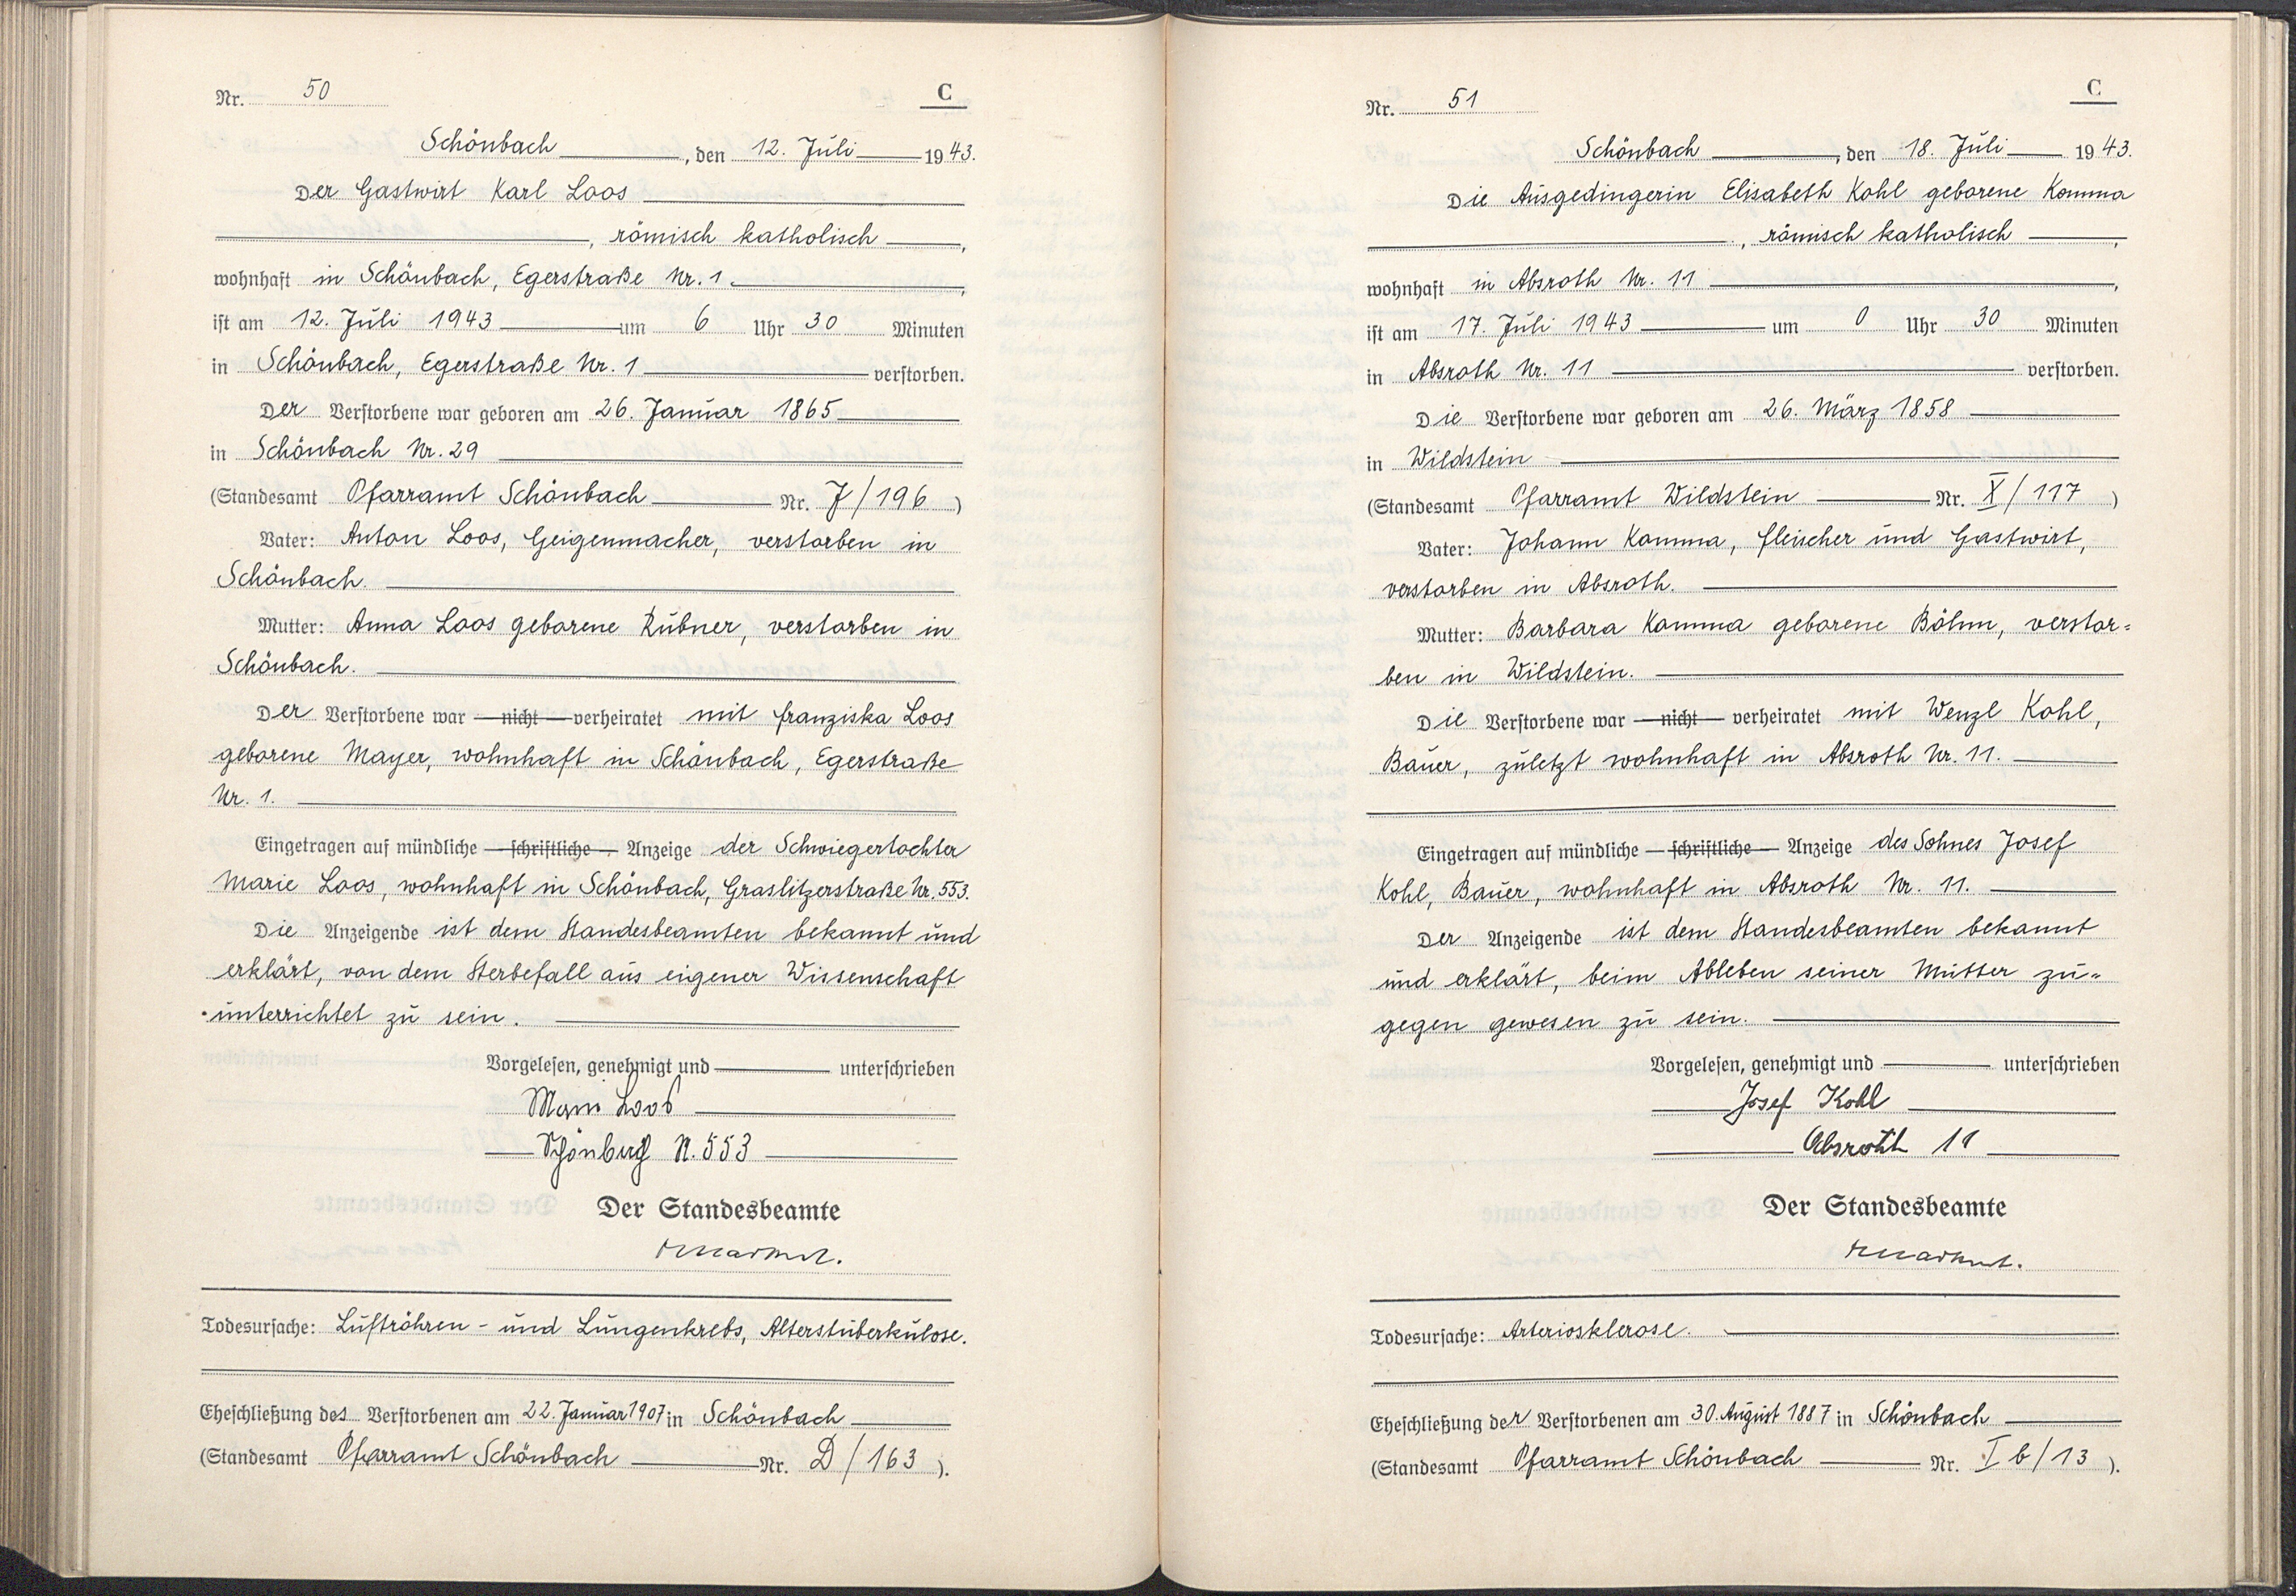 Nr. 50 C
Schönbach, den 12. Juli 1943.
Der Gastwirt Karl Loos
, römisch katholisch,
wohnhaft in Schönbach, Egerstraße Nr. 1.,
ist am 12. Juli 1943 um 6 Uhr 30 Minuten
in Schönbach, Egerstraße Nr. 1 verstorben.
Der Verstorbene war geboren am 26. Januar 1865
in Schönbach Nr. 29
(Standesamt Pfarramt Schönbach Nr. J/196)
Vater: Anton Loos, Geigenmacher, verstorben in
Schönbach.
Mutter: Anna Loos geborene Rubner, verstorben in
Schönbach.
Der Verstorbene war nicht verheiratet mit Franziska Loos
geborene Mayer, wohnhaft in Schönbach, Egerstraße
Nr. 1.
Eingetragen auf mündliche schriftliche Anzeige der Schwiegertochter
Marie Loos, wohnhaft in Schönbach, Graslitzerstraße Nr. 553.
Die Anzeigende ist dem Standesbeamten bekannt und
erklärt, von dem Sterbefall aus eigener Wissenschaft
unterrichtet zu sein.
Vorgelesen, genehmigt und unterschrieben
Loos
N. 553
Der Standesbeamte
Todesursache: Luftröhren- und Lungenkrebs, Alterstuberkulose.
Eheschließung des Verstorbenen am 22. Januar 1907 in Schönbach
(Standesamt Pfarramt Schönbach Nr. D/163).
Nr. 51 C
Schönbach, den 18. Juli 1943.
Die Ausgedingerin Elisabeth Kohl geborene Komma
, römisch katholisch,
wohnhaft in Absroth Nr. 11,
ist am 17. Juli 1943 um 0 Uhr 30 Minuten
in Absroth Nr. 11 verstorben.
Die Verstorbene war geboren am 26. März 1858
in Wildstein
(Standesamt Pfarramt Wildstein Nr. X/117)
Vater: Johann Komma, Fleischer und Gastwirt,
verstorben in Absroth.
Mutter: Barbara Komma geborene Böhm, verstor=
ben in Wildstein.
Die Verstorbene war nicht verheiratet mit Wenzl Kohl,
Bauer, zuletzt wohnhaft in Absroth Nr. 11.
Eingetragen auf mündliche schriftliche Anzeige des Sohnes Josef
Kohl, Bauer, wohnhaft in Absroth Nr. 11.
Der Anzeigende ist dem Standesbeamten bekannt
und erklärt, beim Ableben seiner Mutter zu=
gegen gewesen zu sein.
Vorgelesen, genehmigt und unterschrieben
Josef Kohl
Absroth 11
Der Standesbeamte
Todesursache: Arteriosklerose.
Eheschließung der Verstorbenen am 30. August 1887 in Schönbach
(Standesamt Pfarramt Schönbach Nr. I b/13).